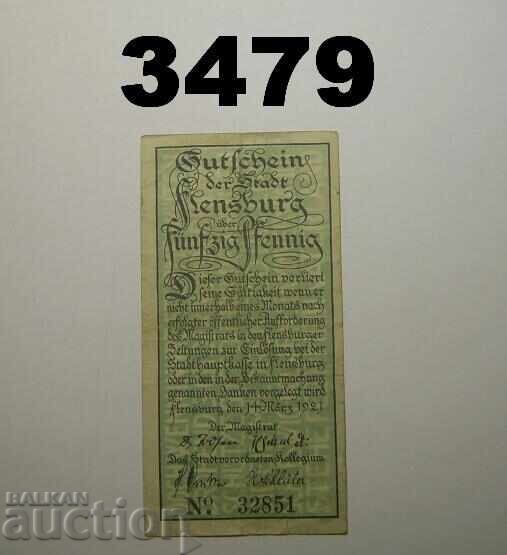 3479
Gutschein
der Stadt
Flensburg
über
fünfzig Pfennig
Dieser Gutschein verliert
seine Gültigkeit wenn er
nicht innerhalb eines Monats nach
erfolgter öffentlicher Aufforderung
des Magistrats in den Flensburger
Zeitungen zur Einlösung bei der
Stadthauptkasse in Flensburg
oder in den in der Bekanntmachung
genannten Banken vorgelegt wird
Flensburg den 14 März 1921
Der Magistrat
Das Stadtverordneten Kollegium
No 32851
BALKAN
auction